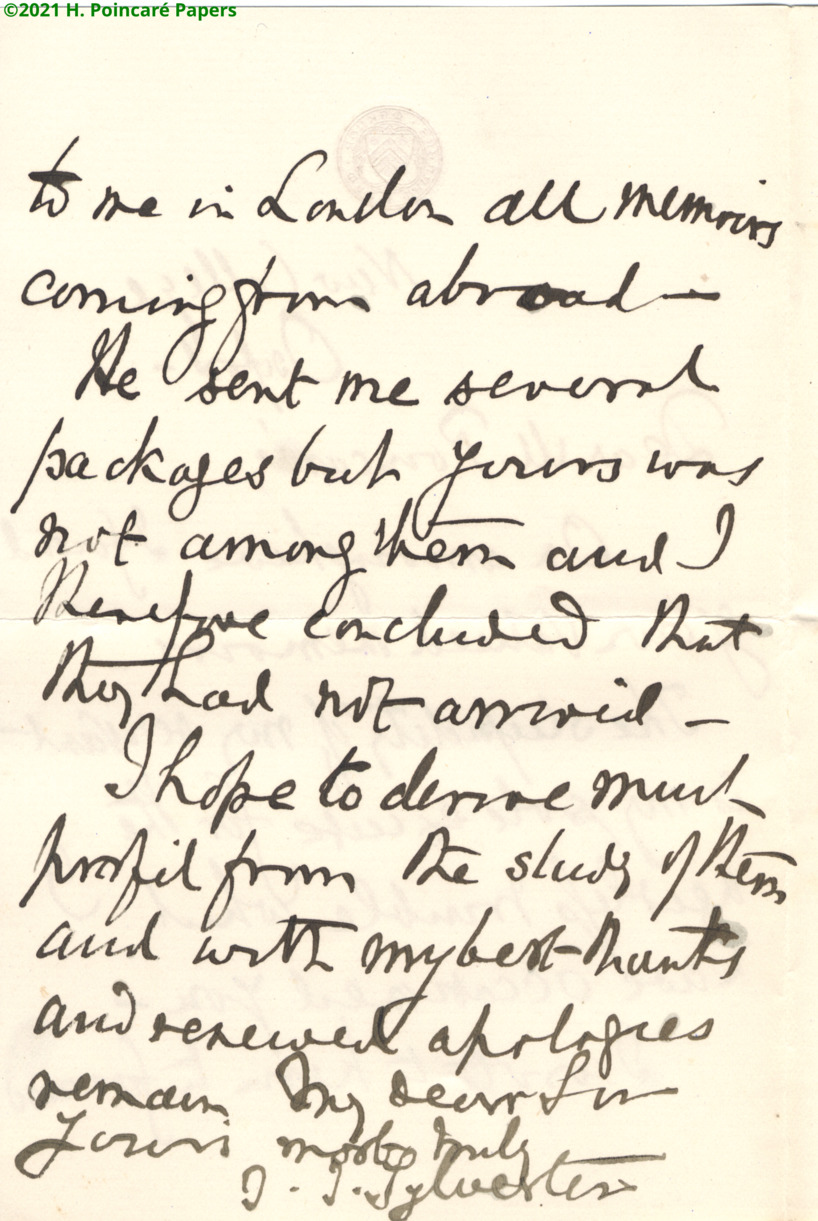 ©2021 H. Poincaré Papers
to me in London all memoirs
coming from abroad —
He sent me several
packages but yours was
not among them and I
therefore concluded that
they had not arrived —
I hope to derive much
profit from the study of them
and with my best thanks
and renewed apologies
remain My dear Sir
Yours most truly
J. J. Sylvester